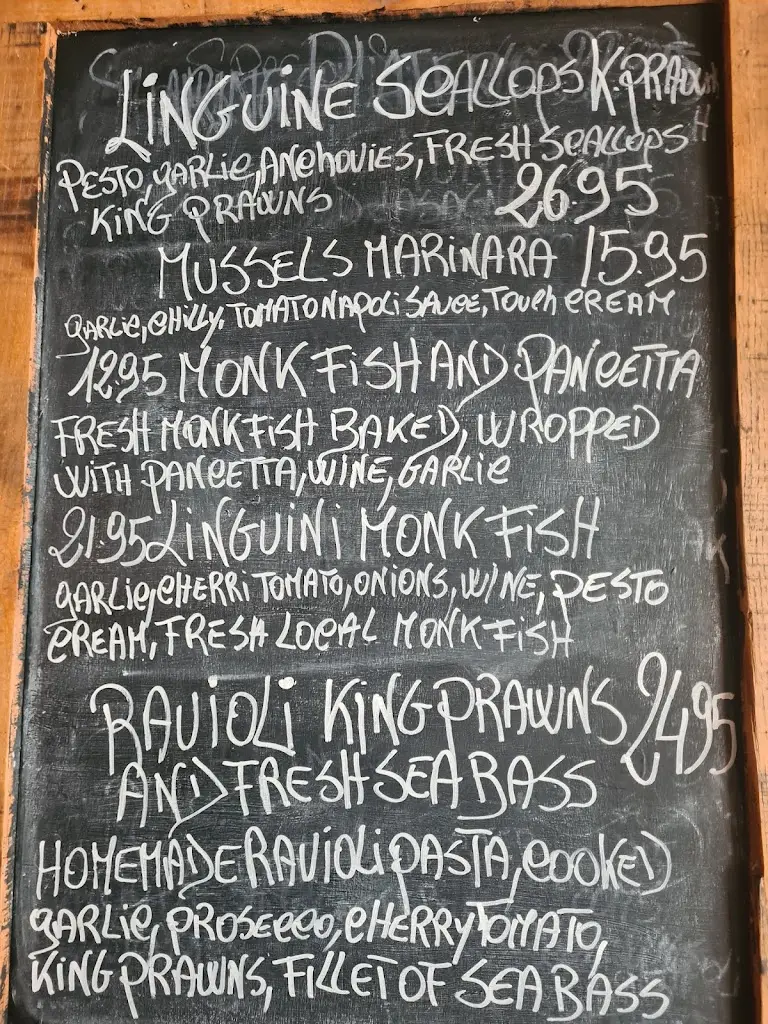 LINGUINE SCALLOPS K.PRAWN
PESTO, GARLIC, ANCHOVIES, FRESH SCALLOPS
KING PRAWNS 26.95
MUSSELS MARINARA 15.95
GARLIC, CHILLY, TOMATO NAPOLI SAUCE, TOUCH CREAM
12.95 MONK FISH AND PANCETTA
FRESH MONK FISH BAKED, WROPPED
WITH PANCETTA, WINE, GARLIC
21.95 LINGUINI MONK FISH
GARLIC, CHERRI TOMATO, ONIONS, WINE, PESTO
CREAM, FRESH LOCAL MONK FISH
RAVIOLI KING PRAWNS 24.95
AND FRESH SEA BASS
HOMEMADE RAVIOLI PASTA, COOKED
GARLIC, PROSECCO, CHERRY TOMATO,
KING PRAWNS, FILLET OF SEA BASS